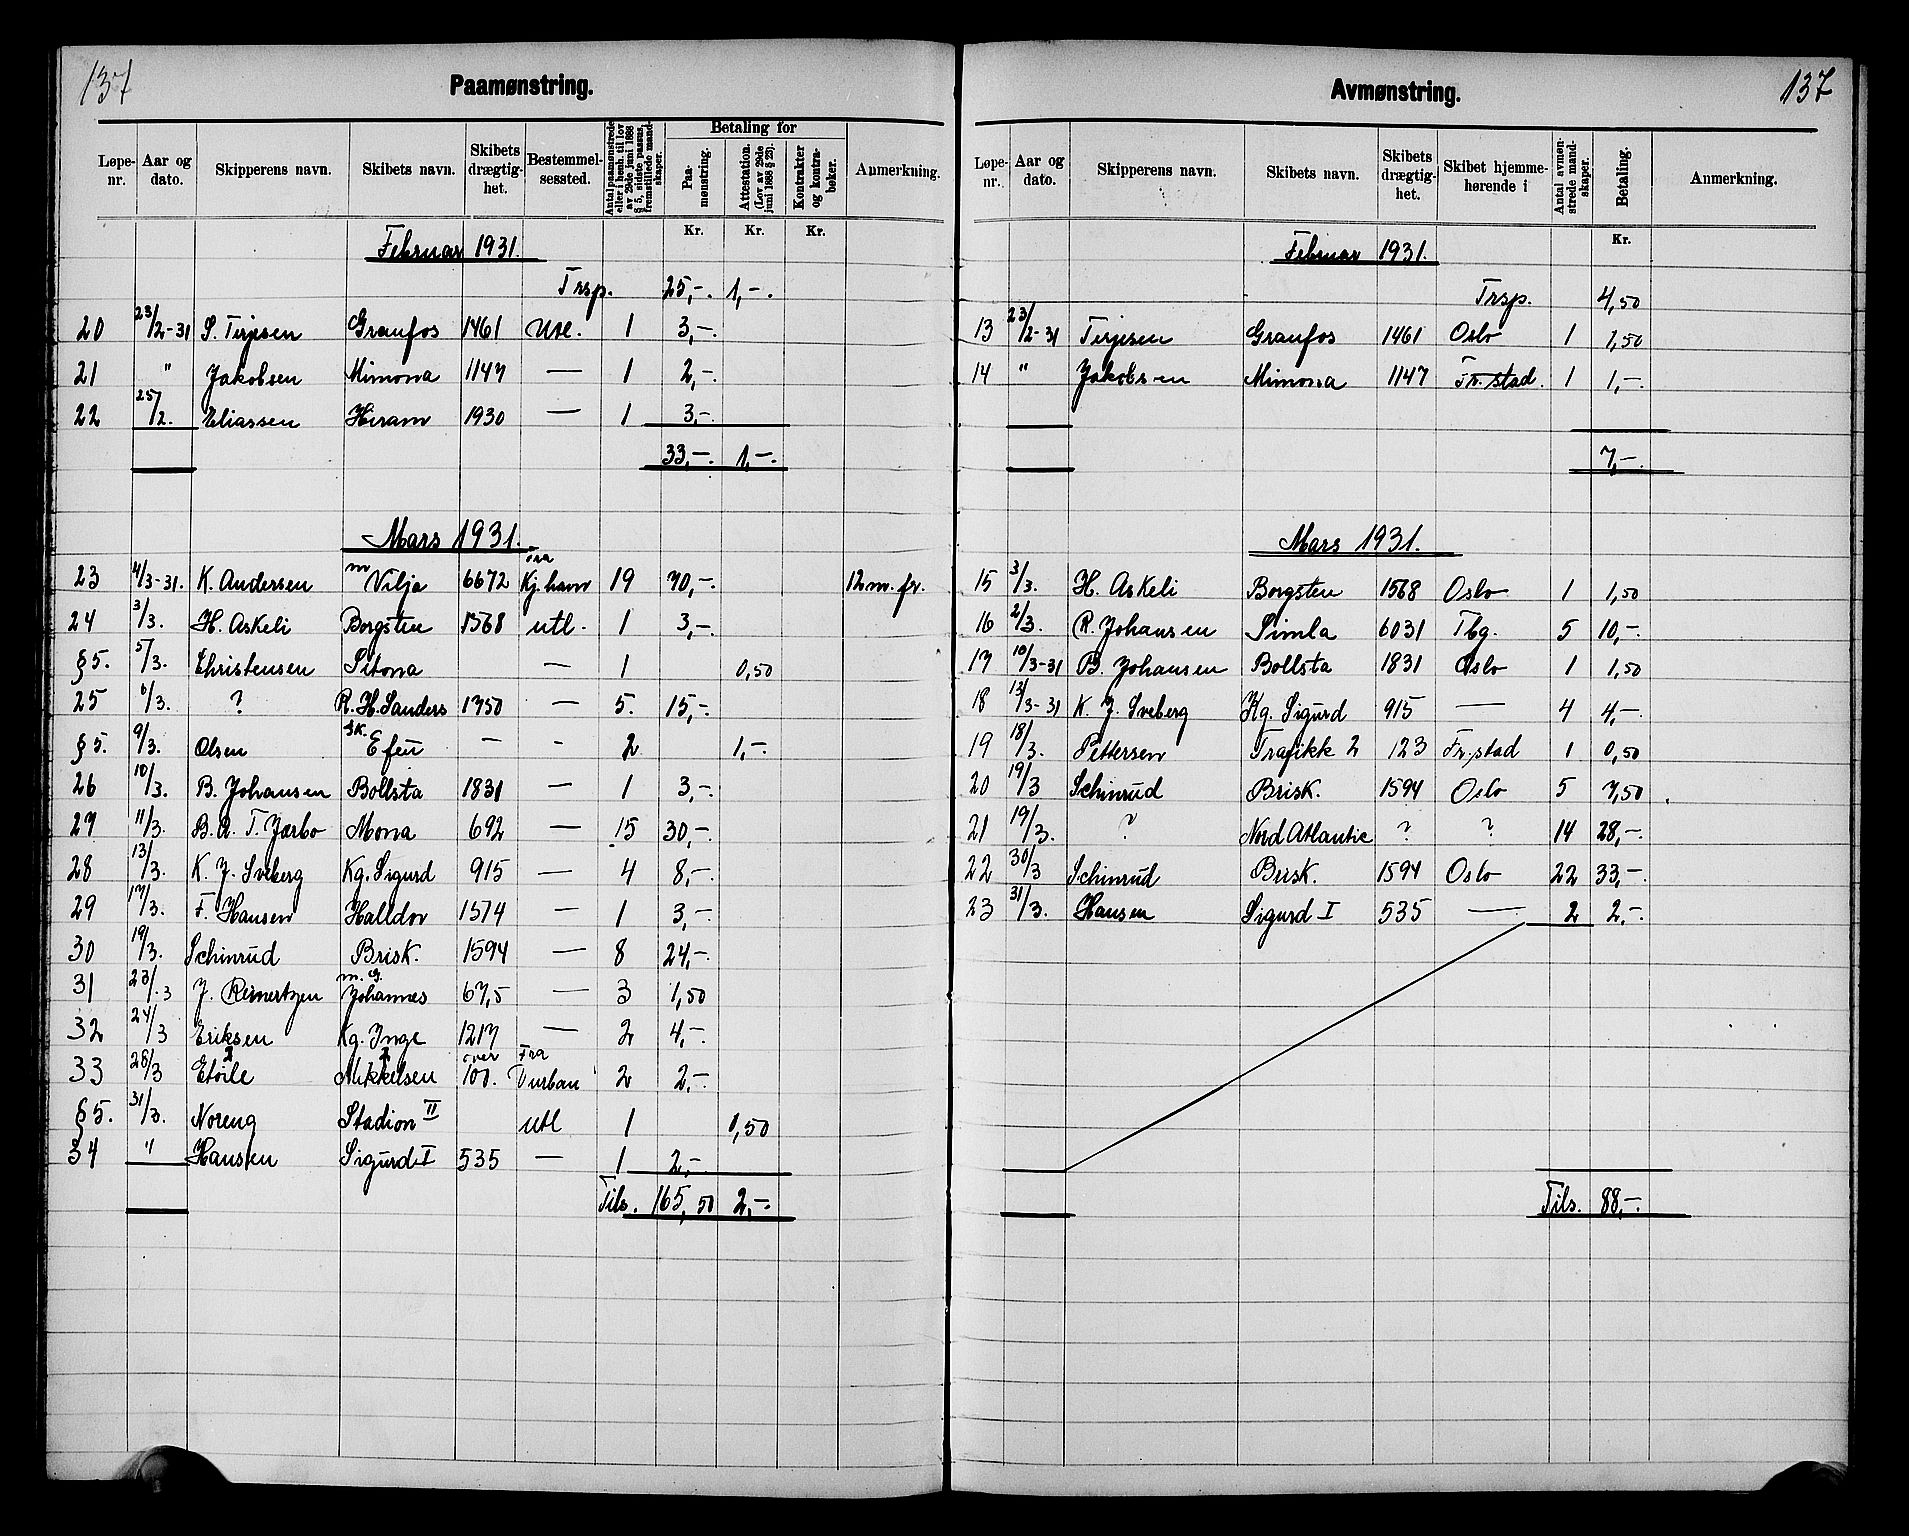 137
Paamønstring.
Løpe-nr. Aar og dato. Skipperens navn. Skibets navn. Skibets drægtig-het. Bestemmel-sessted. Antal paamønstrede eller i henh. til lov av 29de juni 1888 § 5, sidste passus, fremstillede mand-skaper. Betaling for Paa-mønstring. Attestation. (Lov av 29de juni 1888 § 23). Kontrakter og kontra-bøker. Anmerkning.
Kr. Kr. Kr.
Februar 1931.
Trsp. 25,-. 1,-.
20 23/2-31 S. Terjesen Granfos 1461 Utl. 1 3,-.
21 " Jakobsen Mimona 1147 — 1 2,-.
22 25/2. Eliassen Hiram 1930 — 1 3,-.
33,-. 1,-.
Mars 1931.
23 4/3-31. K. Andersen m Vilja 6672 fra Kj.havn 19 70,-. 12 m. fr.
24 3/3. H. Askeli Borgsten 1568 utl. 1 3,-.
§5. 5/3. Christensen Sitona — 1 0,50
25 6/3. ? R. H. Sanders 1750 — 5. 15,-.
§5. 9/3. Olsen Sk. Efeu — - 2 1,-.
26 10/3. B. Johansen Bollsta 1831 — 1 3,-.
27 11/3. B. A. T. Jærbo Mona 692 — 15 30,-.
28 13/3. K. J. Sveberg Kg. Sigurd 915 — 4 8,-.
29 17/3. F. Hansen Halldor 1574 — 1 3,-.
30 19/3. Schinrud Brisk. 1594 — 8 24,-.
31 23/.3 J. Reinertzen m. G. Johannes 67,5 — 3 1,50
32 24/3 Eriksen Kg. Inge 1217 — 2 4,-.
33 28/3 Etoile Mikkelsen over 100. Fra Durban 2 2,-.
§5. 31/3. Noreng Stadion II utl 1 0,50
34 " Hansen Sigurd I 535 — 1 2,-
Tils. 165,50 2,-.
137
Avmønstring.
Løpe-nr. Aar og dato. Skipperens navn. Skibets navn. Skibets drægtig-het. Skibet hjemme-hørende i Antal avmøn-strede mand-skaper. Betaling. Anmerkning.
Kr.
Februar 1931.
Trsp. 4,50
13 23/2-31 Terjesen Granfos 1461 Oslo 1 1,50
14 " Jakobsen Mimona 1147 Fr.stad. 1 1,-.
7,-.
Mars 1931.
15 3/3. H. Askeli Borgsten 1568 Oslo 1 1,50
16 2/3. R. Johansen Simla 6031 Tbg. 5 10,-.
17 10/3-31 B. Johansen Bollsta 1831 Oslo 1 1,50
18 13/3-31 K. J. Sveberg Kg. Sigurd 915 — 4 4,-.
19 18/3. Pettersen Trafikk 2 123 Fr.stad 1 0,50
20 19/3 Schinrud Brisk. 1594 Oslo 5 7,50
21 19/3. ? Nord Atlantic ? ? 14 28,-.
22 30/3 Schinrud Brisk. 1594 Oslo 22 33,-.
23 31/3. Hansen Sigurd I 535 — 2 2,-.
Tils. 88,-.